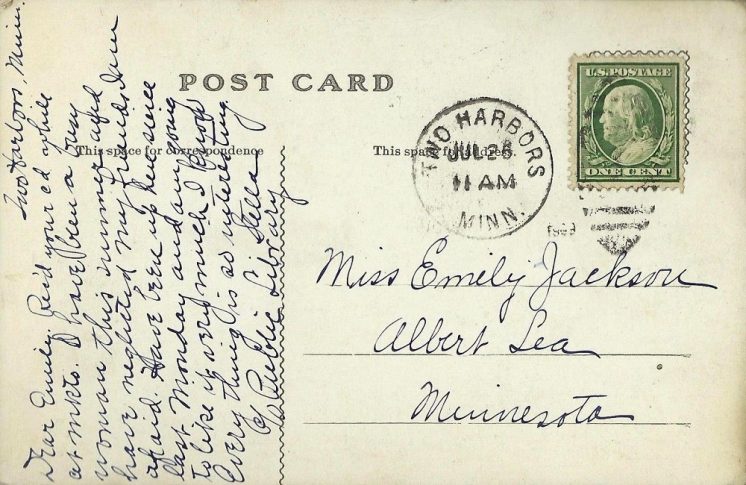 POST CARD
This space for correspondence
This space for address.
TWO HARBORS
JUL 26
11 AM
MINN.
1909
U.S. POSTAGE
ONE CENT
Two Harbors, Minn.
Dear Emily. Recd your cd awhile
at mkto. I have been a busy
woman this summer and
have neglected my friends, I am
afraid. Have been up here since
last Monday and am going
to like it very much I know
Every thing is so interesting
Stella
c/o Public Library
Miss Emily Jackson
Albert Lea
Minnesota